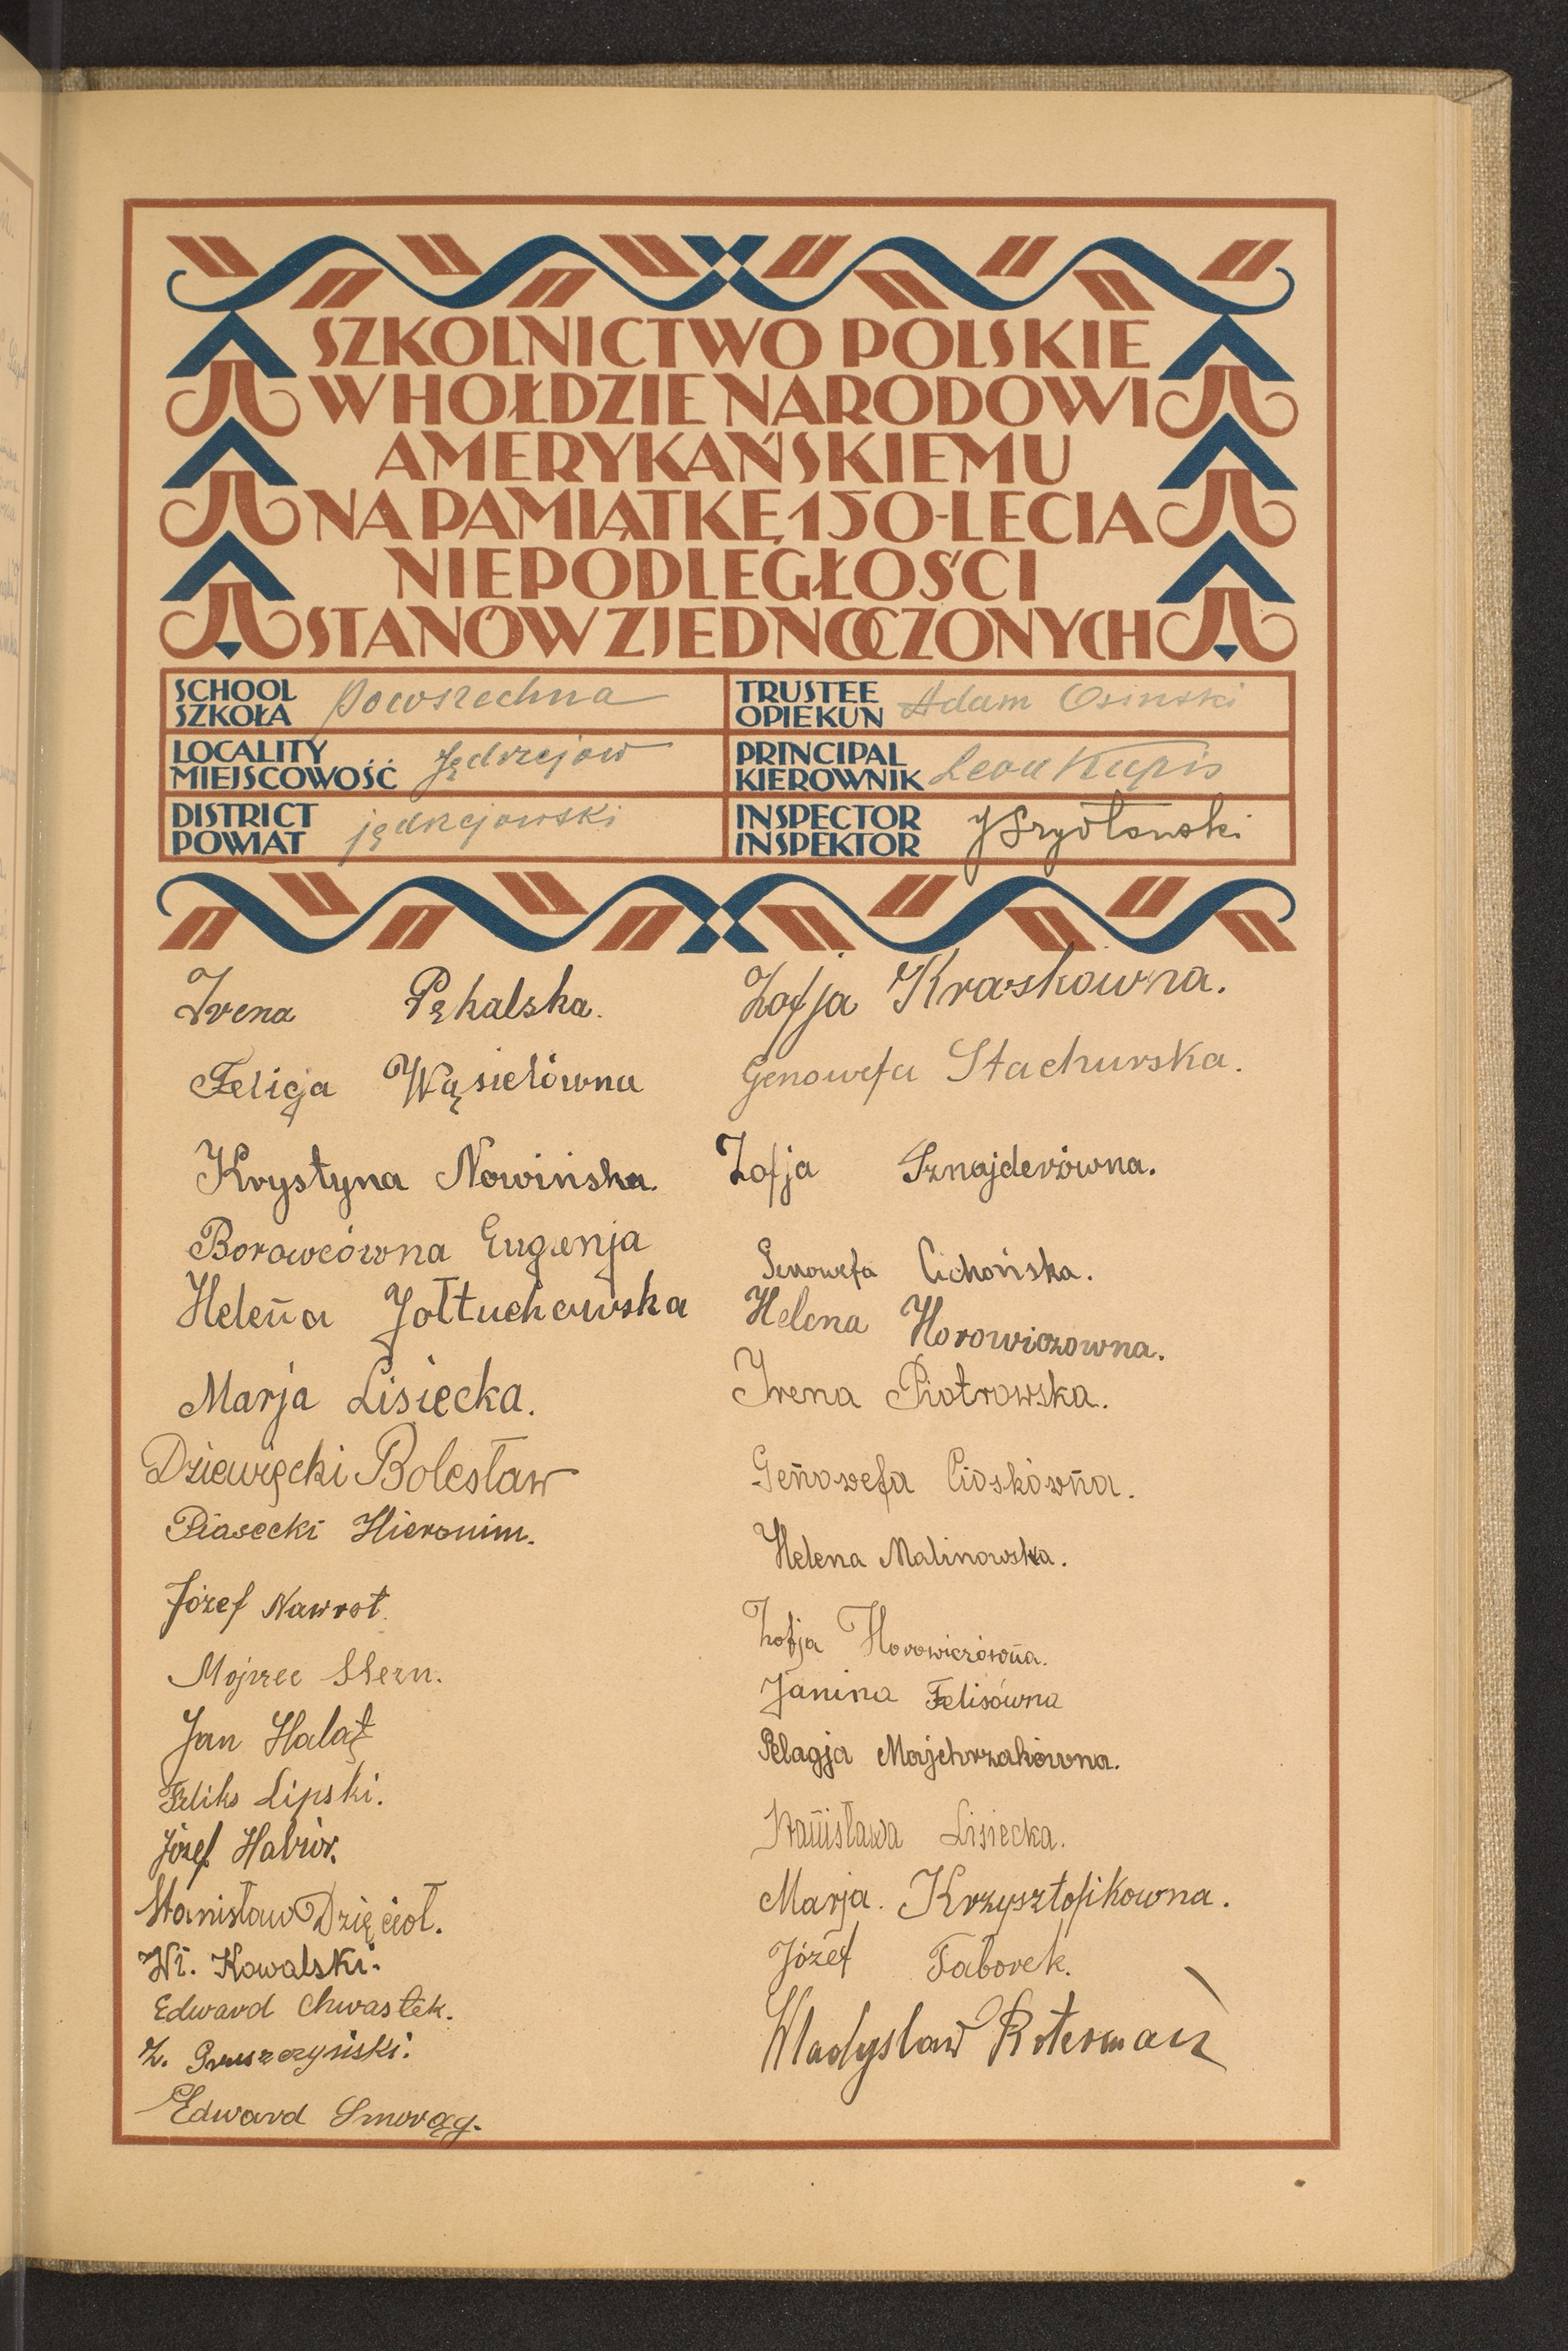 SZKOLNICTWO POLSKIE
W HOŁDZIE NARODOWI
AMERYKAŃSKIEMU
NA PAMIĄTKĘ 150-LECIA
NIEPODLEGŁOŚCI
STANÓW ZJEDNOCZONYCH
SCHOOL
SZKOŁA
Powszechna
TRUSTEE
OPIEKUN
Adam Osinski
LOCALITY
MIEJSCOWOŚĆ
Jędrzejow
PRINCIPAL
KIEROWNIK
Leon Kupis
DISTRICT
POWIAT
jędrzejowski
INSPECTOR
INSPEKTOR
J Szydłowski
Irena Pękalska.
Felicja Wąsielówna
Krystyna Nowińska.
Borowcówna Eugenja
Helena Jołtuchowska
Marja Lisiecka.
Dziewięcki Bolesław
Piasecki Hieronim.
Józef Nawrot.
Mojzee Stern.
Jan Halat
Feliks Lipski.
Józef Habior.
Stanisław Dzięcioł.
Wł. Kowalski.
Edward Chwastek.
Z. Gruszczyński.
Edward Smorąg.
Zofja Kraskowna.
Genowefa Stachurska.
Zofja Sznajderówna.
Genowefa Cichońska.
Helena Horowiczowna.
Irena Piotrowska.
Genowefa Cioskówna.
Helena Malinowska.
Zofja Horowiczówna.
Janina Felisówna
Pelagja Majchrzakówna.
Stanisława Lisiecka.
Marja. Krzysztofikowna.
Józef Taborek.
Wladyslaw Roterman